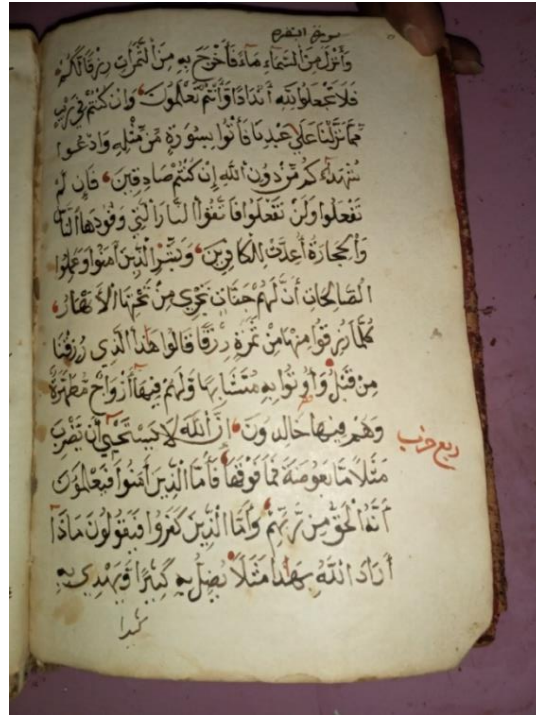 سورة البقرة
وَأَنْزَلَ مِنَ السَّمَاءِ مَاءً فَأَخْرَجَ بِهِ مِنَ الثَّمَرَاتِ رِزْقًا لَكُمْ
فَلَا تَجْعَلُوا لِلَّهِ أَنْدَادًا وَأَنْتُمْ تَعْلَمُونَ وَإِنْ كُنْتُمْ فِي رَيْبٍ
مِمَّا نَزَّلْنَا عَلَى عَبْدِنَا فَأْتُوا بِسُورَةٍ مِنْ مِثْلِهِ وَادْعُوا
شُهَدَاءَكُمْ مِنْ دُونِ اللَّهِ إِنْ كُنْتُمْ صَادِقِينَ فَإِنْ لَمْ
تَفْعَلُوا وَلَنْ تَفْعَلُوا فَاتَّقُوا النَّارَ الَّتِي وَقُودُهَا النَّاسُ
وَالْحِجَارَةُ أُعِدَّتْ لِلْكَافِرِينَ وَبَشِّرِ الَّذِينَ آمَنُوا وَعَمِلُوا
الصَّالِحَاتِ أَنَّ لَهُمْ جَنَّاتٍ تَجْرِي مِنْ تَحْتِهَا الْأَنْهَارُ
كُلَّمَا رُزِقُوا مِنْهَا مِنْ ثَمَرَةٍ رِزْقًا قَالُوا هَذَا الَّذِي رُزِقْنَا
مِنْ قَبْلُ وَأُوتُوا بِهِ مُتَشَابِهًا وَلَهُمْ فِيهَا أَزْوَاجٌ مُطَهَّرَةٌ
وَهُمْ فِيهَا خَالِدُونَ إِنَّ اللَّهَ لَا يَسْتَحْيِي أَنْ يَضْرِبَ
ربع حزب
مَثَلًا مَا بَعُوضَةً فَمَا فَوْقَهَا فَأَمَّا الَّذِينَ آمَنُوا فَيَعْلَمُونَ
أَنَّهُ الْحَقُّ مِنْ رَبِّهِمْ وَأَمَّا الَّذِينَ كَفَرُوا فَيَقُولُونَ مَاذَا
أَرَادَ اللَّهُ بِهَذَا مَثَلًا يُضِلُّ بِهِ كَثِيرًا وَيَهْدِي بِهِ
كثيرا